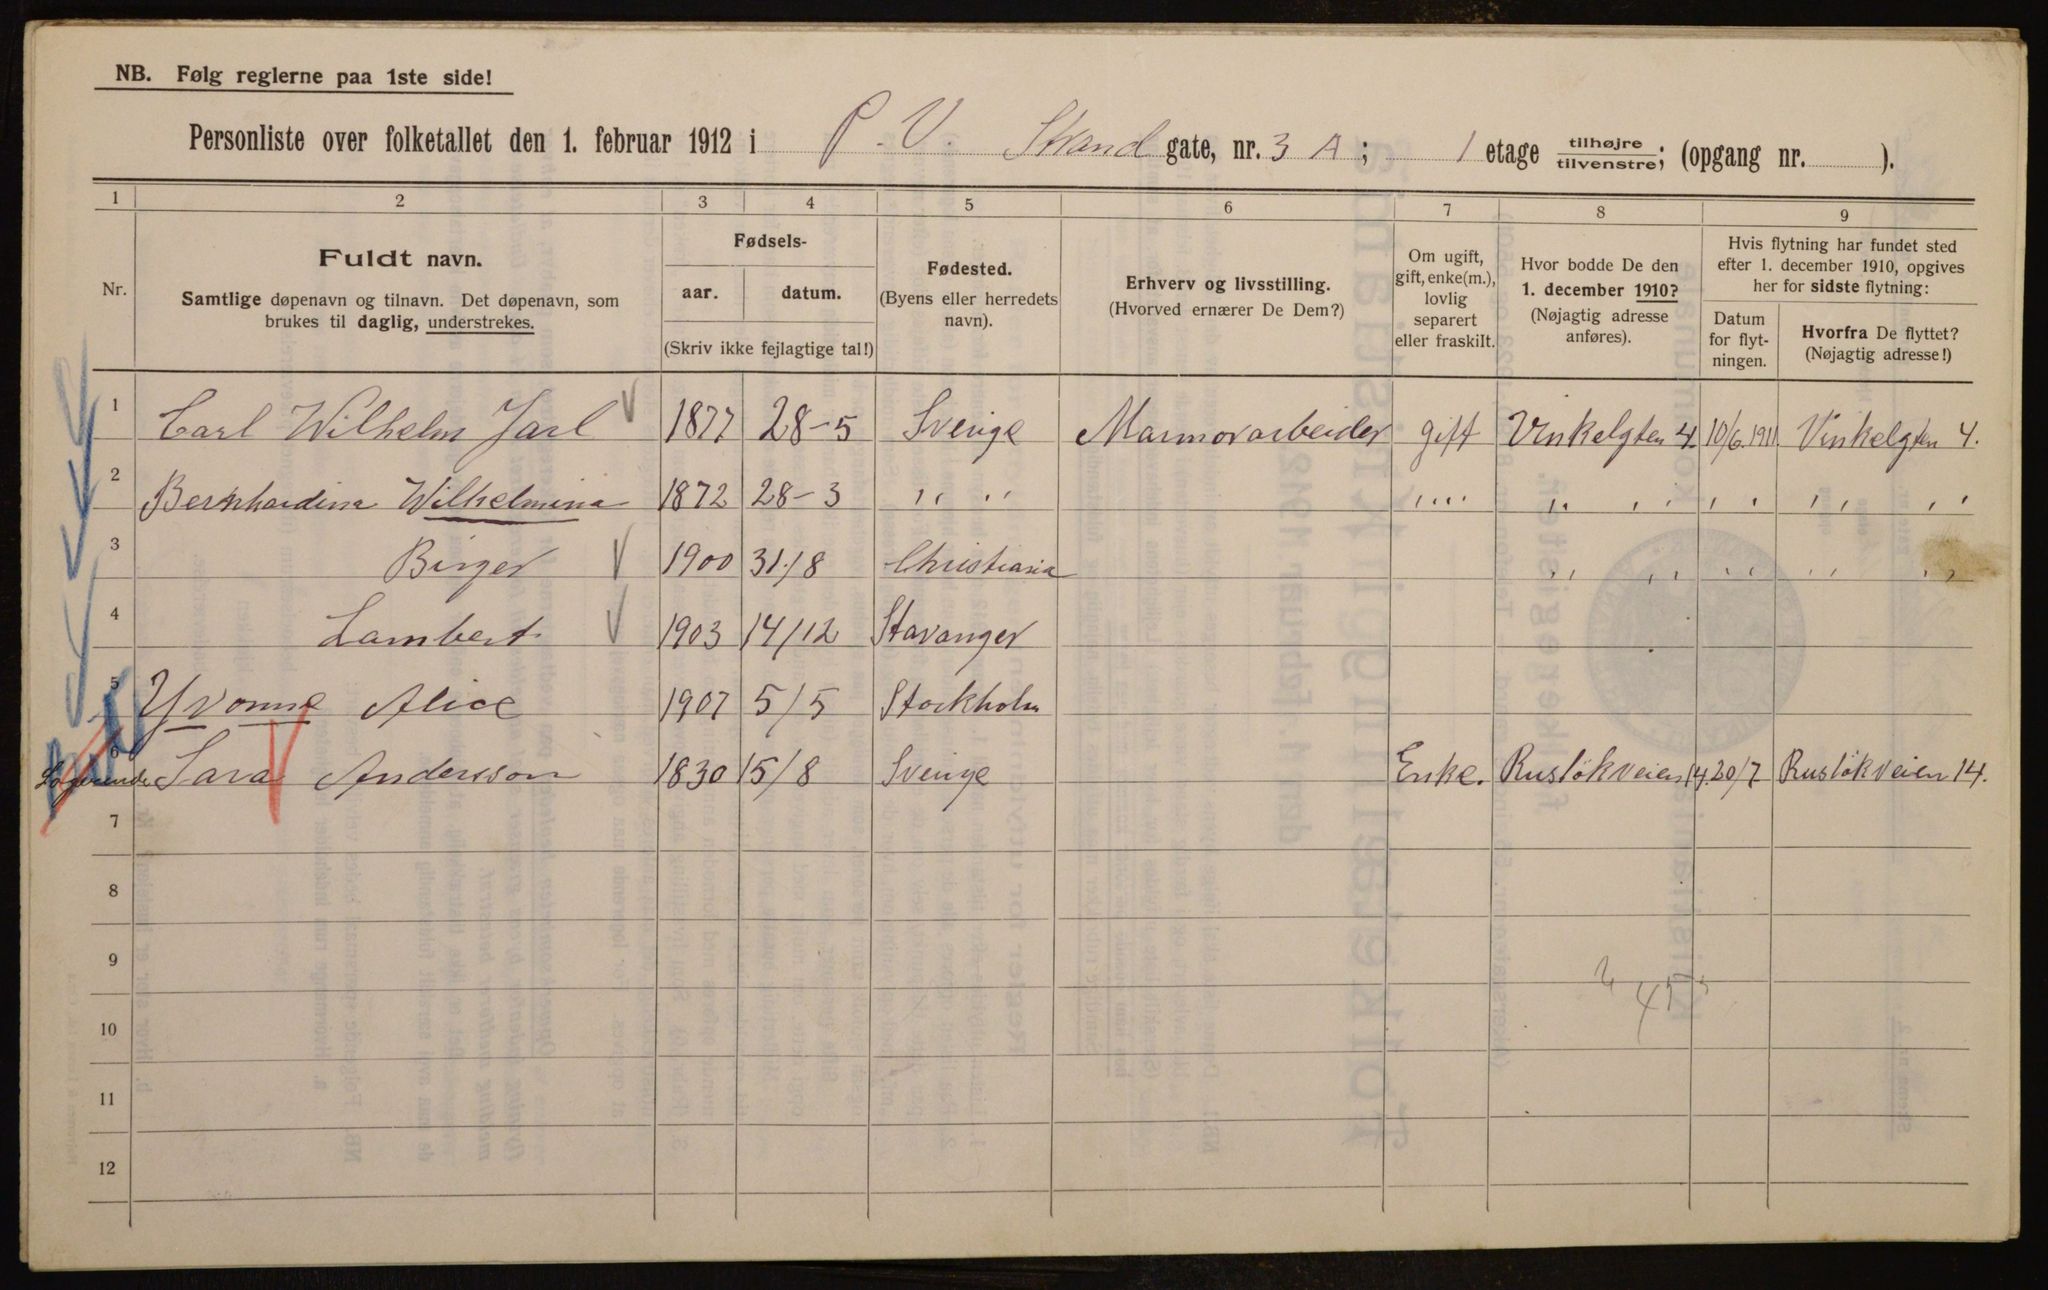 NB. Følg reglerne paa 1ste side!
Personliste over folketallet den 1. februar 1912 i P. V. Strand gate, nr. 3 A; 1 etage tilhøjre/tilvenstre; (opgang nr. ).
1 2 3 4 5 6 7 8 9
Nr.
Fuldt navn.
Samtlige døpenavn og tilnavn. Det døpenavn, som
brukes til daglig, understrekes.
Fødsels-
aar. datum.
(Skriv ikke fejlagtige tal!)
Fødested.
(Byens eller herredets
navn).
Erhverv og livsstilling.
(Hvorved ernærer De Dem?)
Om ugift,
gift, enke(m.),
lovlig
separert
eller fraskilt.
Hvor bodde De den
1. december 1910?
(Nøjagtig adresse
anføres).
Hvis flytning har fundet sted
efter 1. december 1910, opgives
her for sidste flytning:
Datum
for flyt-
ningen.
Hvorfra De flyttet?
(Nøjagtig adresse!)
1 Carl Wilhelm Jarl 1877 28-5 Sverige Marmorarbeider gift Vinkelgten 4. 10/6.1911. Vinkelgten 4.
2 Bernhardina Wilhelmina 1872 28-3 " " " " " " " " " "
3 Birger 1900 31/8 Christiania " " " " " "
4 Lambert 1903 14/12 Stavanger
5 Yvonne Alice 1907 5/5 Stockholm
6 Logerende Sara Andersson 1830 15/8 Sverige Enke. Rusløkveien 14. 20/7 Rusløkveien 14.
7
8
9
10
11
12